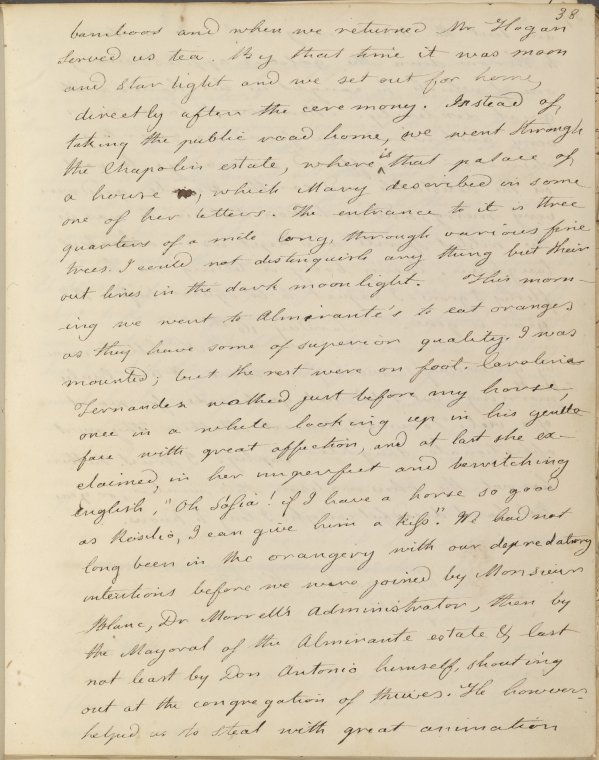 38
bamboos and when we returned Mr Hogan
served us tea. By that time it was moon
and star light and we set out for home,
directly after the ceremony. Instead of
taking the public road home, we went through
the Chapolin estate, where is that palace of
a house, which Mary described in some
one of her letters. The entrance to it is three
quarters of a mile long, through various fine
trees. I could not distinguish any thing but their
out lines in the dark moonlight. This morn-
ing we went to Almirante's to eat oranges
as they have some of superior quality. I was
mounted; but the rest were on foot. Carolina
Fernandez walked just before my horse,
once in a while looking up in his gentle
face with great affection, and at last she ex-
claimed, in her imperfect and bewitching
english, "Oh Sofia! if I have a horse so good
as Rosilio, I can give him a kiss". We had not
long been in the orangery with our depredatory
intentions before we were joined by Monsieur
Blanc, Dr Morrell's Administrator, then by
the Mayoral of the Almirante estate & last
not least by Don Antonio himself, shouting
out at the congregation of thieves. He however
helped us to steal with great animation